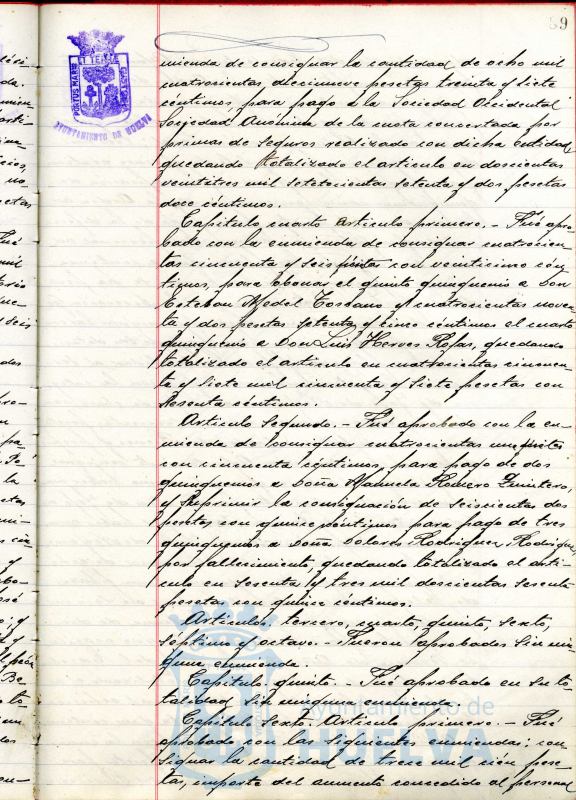 89
PORTUS MARIS
ET TERRE
CUSTODIA
AYUNTAMIENTO DE HUELVA
mienda de consignar la cantidad de ocho mil
cuatrocientas diecinueve pesetas treinta y siete
céntimos, para pago a la Sociedad Occidental
Sociedad Anónima de la cuota concertada por
primas de seguros realizado con dicha entidad,
quedando totalizado el artículo en doscientas
veintitres mil setecientas setenta y dos pesetas
doce céntimos.
Capítulo cuarto Artículo primero. - Fué apro-
bado con la enmienda de consignar cuatrocien-
tas cincuenta y seis pesetas con veinticinco cén-
timos, para abonar el quinto quinquenio a Don
Esteban Medel Toscano y cuatrocientas noven-
ta y dos pesetas setenta y cinco céntimos el cuarto
quinquenio a Don Luis Hervas Rojas, quedando
totalizado el artículo en cuatrocientas cincuen-
ta y siete mil cincuenta y siete pesetas con
sesenta céntimos.
Artículo segundo. - Fué aprobado con la en-
mienda de consignar cuatrocientas una pesetas
con cincuenta céntimos, para pago de dos
quinquenios a Doña Manuela Romero
y suprimir la consignación de seiscientas dos
pesetas con quince céntimos para pago de tres
quinquenios a Doña Dolores Rodriguez Rodriguez
por fallecimiento, quedando totalizado el artí-
culo en sesenta y tres mil doscientas sesenta
pesetas con quince céntimos.
Artículos, tercero, cuarto, quinto, sexto,
séptimo y octavo. - Fueron aprobados sin nin-
guna enmienda.
Capítulo quinto. - Fué aprobado en su to-
talidad, sin ninguna enmienda.
Capítulo sexto. Artículo primero. - Fué
aprobado con las siguientes enmiendas; con-
signar la cantidad de trece mil cien pese-
tas, importe del aumento concedido al personal
Ayuntamiento de
HUELVA